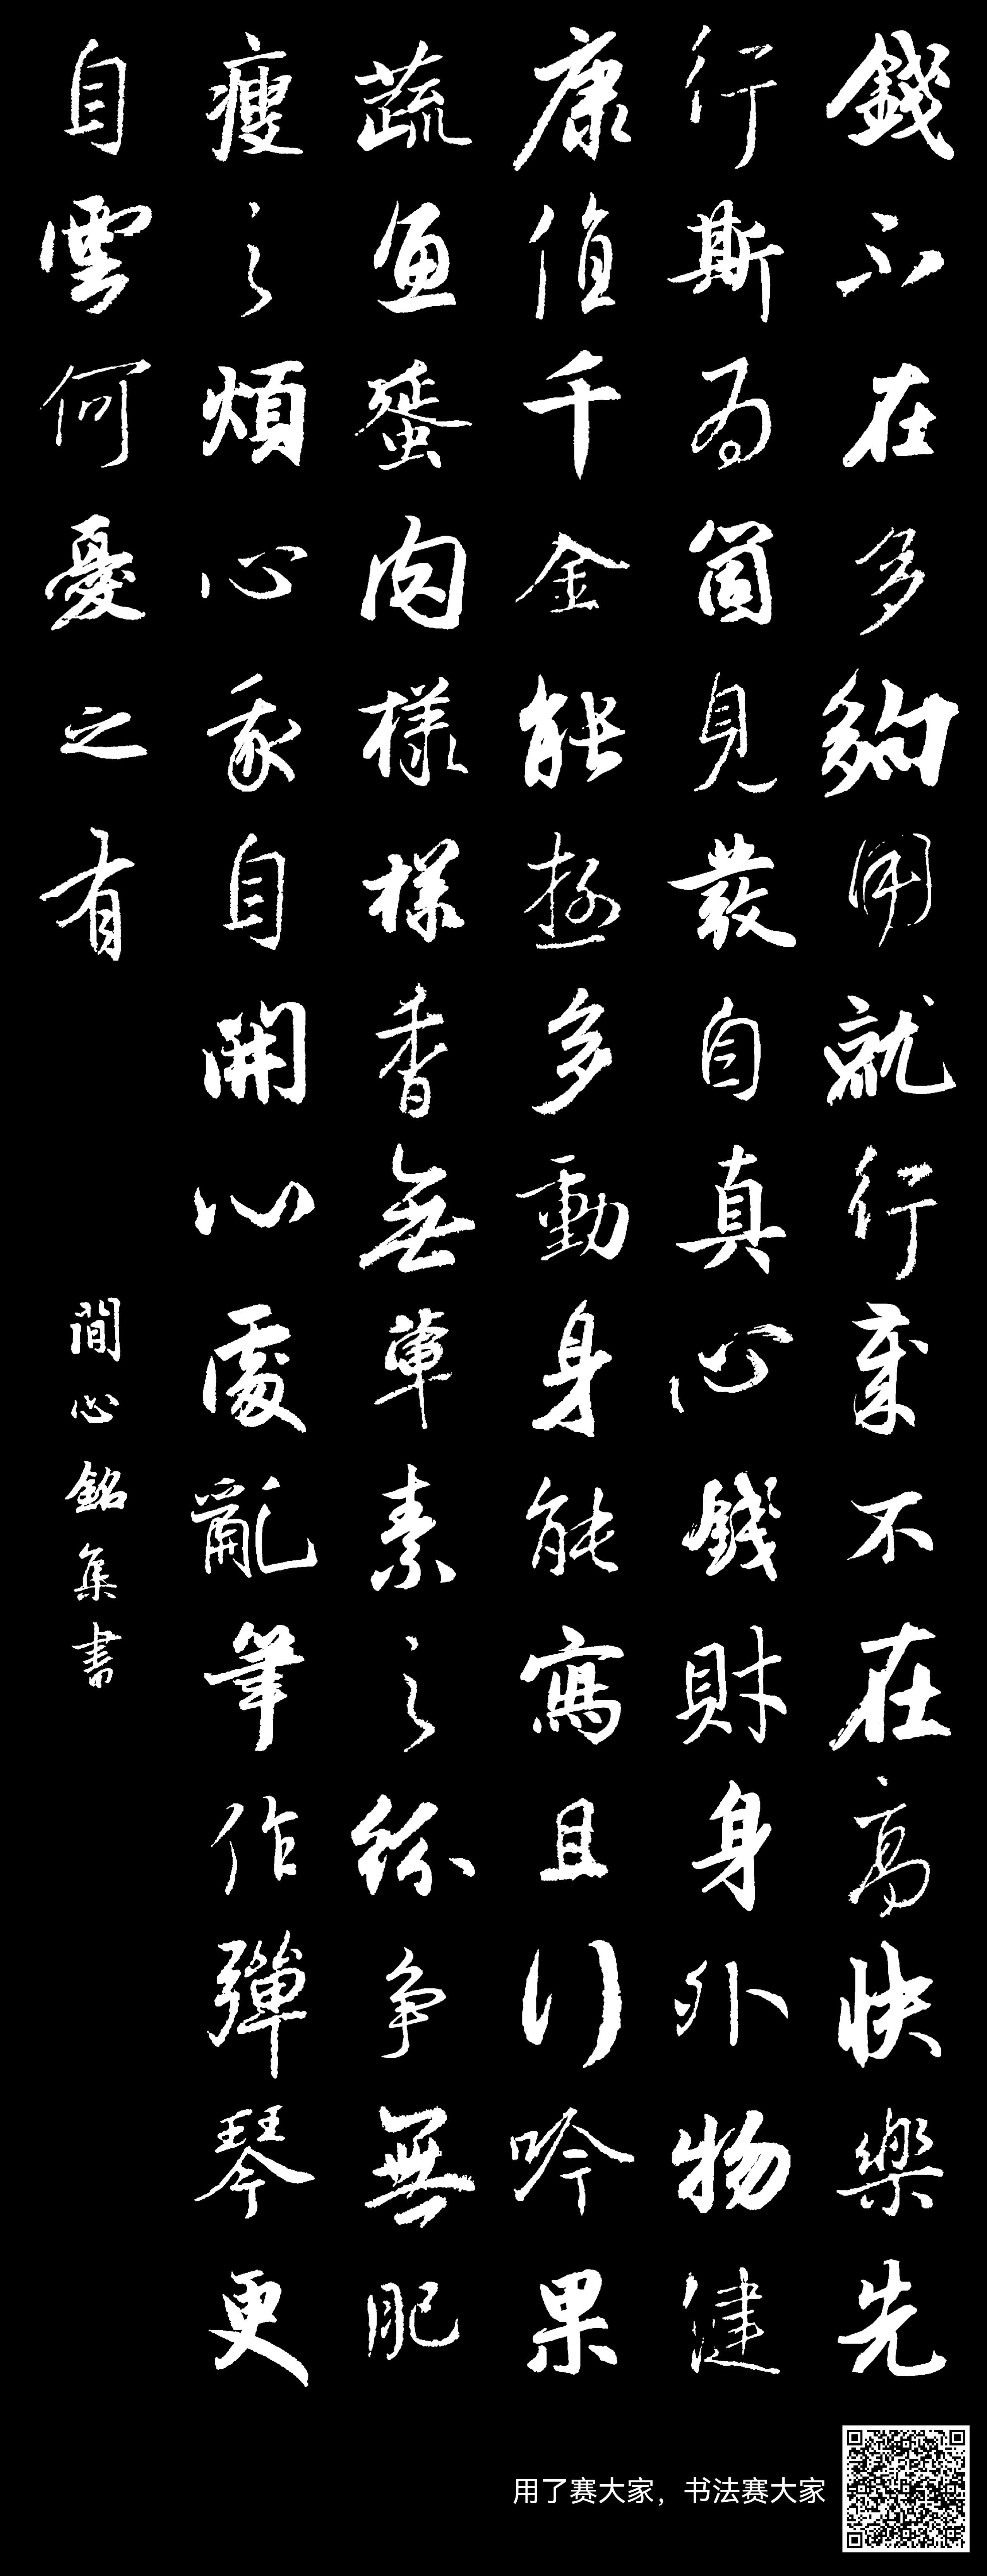 錢不在多夠用就行業不在高快樂先
行斯為箇見發自真心錢財身外物健
康值千金能遊多動身能寫且行吟果
蔬魚蛋肉樣樣香無單素之紛爭無肥
瘦之煩心我自開心處亂筆作彈琴更
自雲何憂之有
閒心銘集書
用了赛大家，书法赛大家